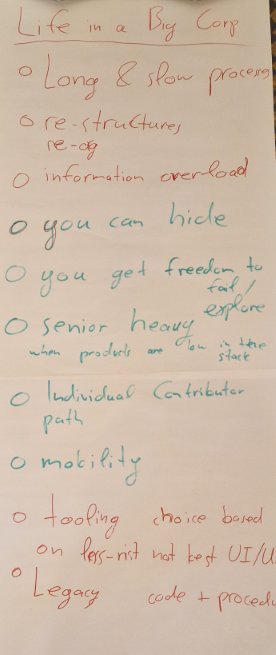 Life in a Big Corp
o Long & slow process
o re-structures
re-org
o information overload
o you can hide
o you get freedom to
fail/
explore
o senior heavy
when products are low in the
stack
o Individual Contributor
path
o mobility
o tooling choice based
on less-risk not best UI/U
o Legacy code + procedu